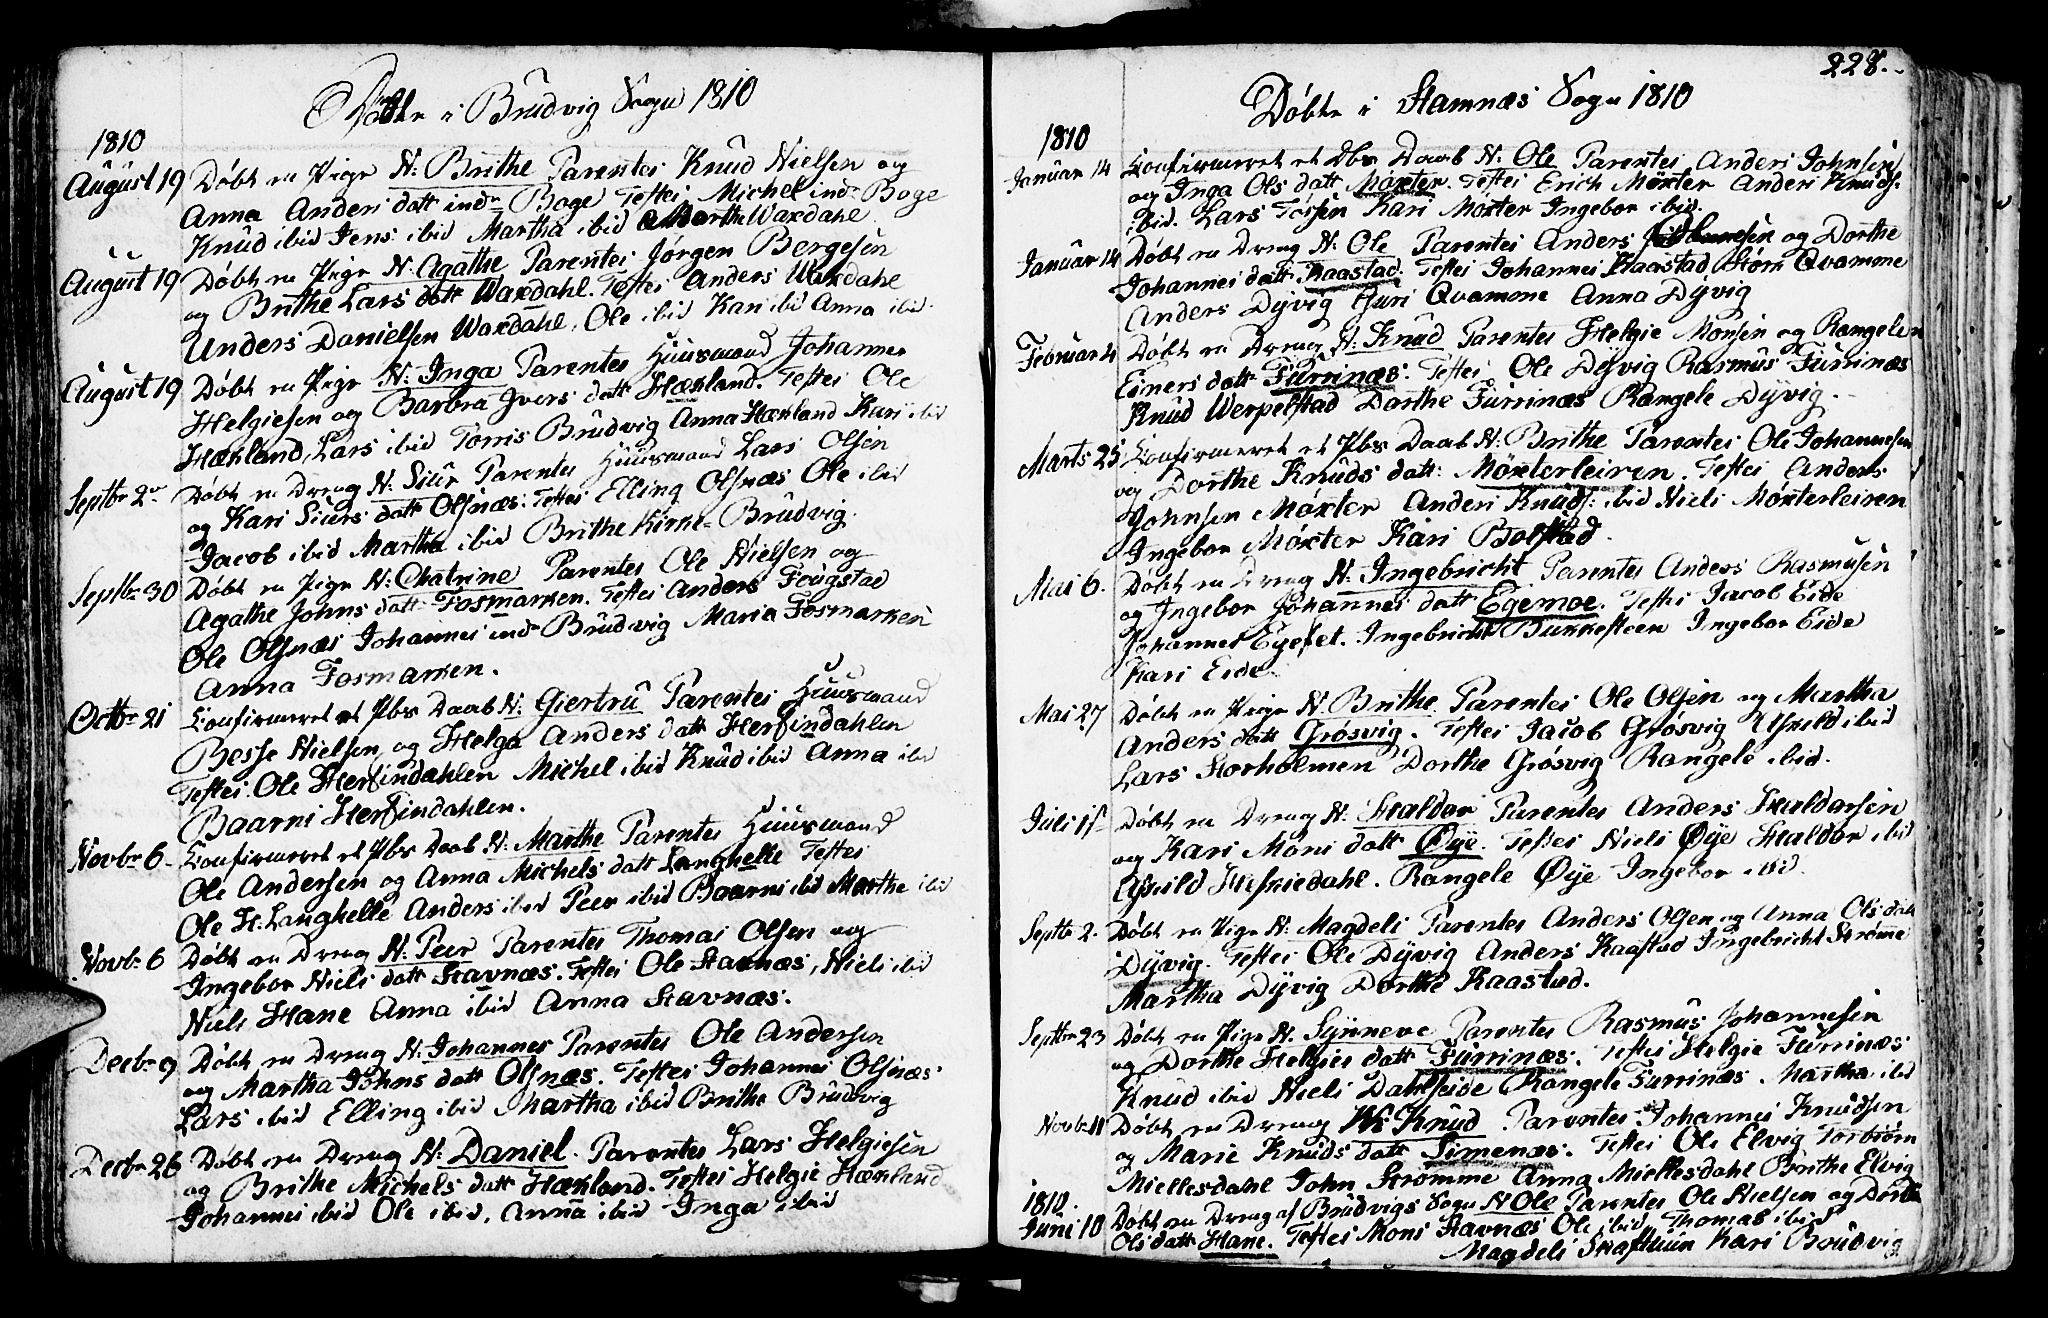 Døbte i Brudvig Sogn 1810
1810
August 19 Døbt en Pige N: Brithe Parentes Knud Nielsen og
Anna Anders datt indr Boge Testes Michel indr Boge
Knud ibid Jens ibid Martha ibid Marthe Waxdahl
August 19 Døbt en Pige N: Agathe Parentes Jørgen Bergesen
og Brithe Lars datt Waxdahl. Testes Anders Waxdahl
Anders Danielsen Waxdahl, Ole ibid Kari ibid Anna ibid.
August 19 Døbt en Pige N: Inga Parentes Huusmand Johannes
Helgiesen og Barbra Ivers datt Hækland. Testes Ole
Hækland, Lars ibid Torris Brudvig Anna Hækland Kari ibid
Septbr 2 Døbt en Dreng N: Siur Parentes Huusmand Lars Olsen
og Kari Siurs datt Olsnæs: Testes Elling Olsnæs Ole ibid
Jacob ibid Martha ibid Brithe Kirke-Brudvig.
Septbr 30 Døbt en Pige N: Chatrine Parentes Ole Nielsen og
Agathe Johns datt Fosmarken. Testes Anders Fougstad
Ole Olsnæs Johannes indr Brudvig Maria Fosmarken
Anna Fosmarken.
Octbr 21 Confirmeret et Pbr Daab N: Giertru Parentes Huusmand
Besse Nielsen og Helga Anders datt Herfindahlen
Testes. Ole Herfindahlen Michel ibid Knud ibid Anna ibd
Baarni Herfindahlen.
Novbr 6 Confirmeret et Pbr Daab N: Marthe Parentes Huusmand
Ole Andersen og Anna Michels datt Langhelle Testes
Ole H. Langhelle Anders ibid Peer ibid Baarni ibid Marthe ibid
Novbr 6 Døbt en Dreng N: Peer Parentes Thomas Olsen og
Ingebor Niels datt Stavnæs. Testes Ole Stavnæs, Niels ibid
Niels Hane Anna ibid Anna Stavnæs.
Decbr 9 Døbt en Dreng N: Johannes Parentes Ole Andersen
og Martha Johns datt Olsnæs. Testes Johannes Olsnæs
Lars ibid Elling ibid Martha ibid Brithe Brudvig
Decbr 26 Døbt en Dreng N: Daniel. Parentes Lars Helgiesen
og Brithe Michels datt Hækland. Testes Helgie Hækland
Johannes ibid Ole ibid, Anna ibid Inga ibid
228.
Døbte i Stamnæs Sogn 1810
1810
Januar 14 Confirmeret et Pbr Daab N: Ole Parentes Anders Johnsen
og Inga Ols datt Møxter. Testes Erich Møxter Anders Knuds:
ibid. Lars Torsen Kari Moxter Ingebor ibid.
Januar 14 Døbt en Dreng N: Ole Parentes Anders og Dorthe
Johannes datt Kaastad. Testes Johannes Kaastad Størk Qvamme
Anders Dyvig Guri Qvamme Anna Dyvig
Februar 4 Døbt en Dreng N: Knud Parentes Helgie Monsen og Rangele
Einers datt Furrinæs. Testes Ole Dyvig Rasmus Furrinæs
Knud Werpelstad Dorthe Furrinæs Rangele Dyvig.
Marts 25 Confirmeret et Pbr Daab N: Brithe Parentes Ole Johannesen
og Dorthe Knuds datt: Møxterleiren. Testes Anders
Johnsen Møxter Anders Knuds: ibid Niels Møxterleiren
Ingebor Møxter Kari Bolstad.
Mai 6. Døbt en Dreng N: Ingebricht Parentes Anders Rasmusen
og Ingebor Johannes datt Egemoe. Testes Jacob Eide
Johannes Eyeset. Ingebricht Bukkesteen Ingebor Eide
Kari Eide
Mai 27 Døbt en Pige N. Brithe Parentes Ole Olsen og Martha
Anders datt Grøsvig. Testes Jacob Grøsvig Asfild ibid
Lars Storholmen Dorthe Grøsvig Rangele ibid.
Juli 15 Døbt en Dreng N: Haldor Parentes Anders Haldorsen
og Kari Mons datt Øye. Testes Niels Øye Haldor ibid
Asfild Hesfiedahl. Rangele Øye Ingebor ibid.
Septbr 2. Døbt en Pige N: Magdeli Parentes Anders Olsen og Anna Ols datt
Dyvig. Testes Ole Dyvig Anders Kaastad Ingebricht Strøme
Martha Dyvig Dorthe Kaastad.
Septbr 23 Døbt en Pige N. Synneve Parentes Rasmus Johannesen
og Dorthe Helgies datt Furrinæs. Testes Helgie Furrinæs
Knud ibid Niels Dahlseide Rangele Furrinæs Martha ibid
Novbr 11 Døbt en Dreng N: Knud Parentes Johannes Knudsen
og Marie Knuds datt Simenæs. Testes Ole Elvig Torbiørn
Miellesdahl John Strømme Anna Miellesdahl Brithe Elvig
1810.
Juni 10 Døbt en Dreng af Brudvigs Sogn N Ole Parentes Ole Nielsen og Dorthe
Ols datt Hane. Testes Mons Stavnæs Ole ibid Thomas ibid
Magdeli Skaftuun Kari Brudvig